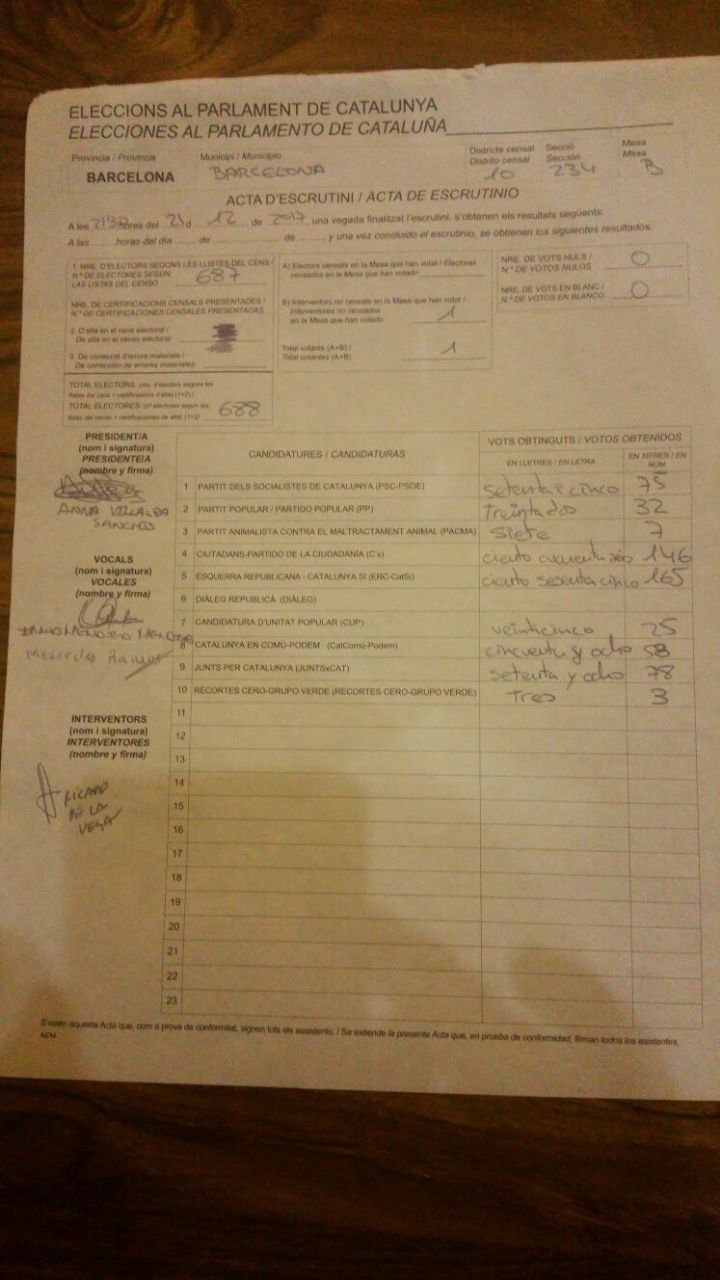 ELECCIONS AL PARLAMENT DE CATALUNYA
ELECCIONES AL PARLAMENTO DE CATALUÑA
Província / Provincia Municipi / Municipio Districte censal Secció Mesa
Distrito censal Sección Mesa
BARCELONA BARCELONA 10 234 B
ACTA D'ESCRUTINI / ACTA DE ESCRUTINIO
A les hores del 21 d 12 de 2017, una vegada finalitzat l'escrutini, s'obtenen els resultats següents:
A las horas del día de de , y una vez concluido el escrutinio, se obtienen los siguientes resultados:
1. NRE. D'ELECTORS SEGONS LES LLISTES DEL CENS /
N.º DE ELECTORES SEGÚN
LAS LISTAS DEL CENSO 687
NRE. DE CERTIFICACIONS CENSALS PRESENTADES /
N.º DE CERTIFICACIONES CENSALES PRESENTADAS
2. D'alta en el cens electoral /
De alta en el censo electoral:
3. De correcció d'errors materials /
De corrección de errores materiales:
TOTAL ELECTORS: (nre. d'electors segons les
llistes del cens + certificacions d'alta) (1+2) /
TOTAL ELECTORES: (nº electores según las
listas del censo + certificaciones de alta) (1+2) 688
A) Electors censats en la Mesa que han votat / Electores
censados en la Mesa que han votado
B) Interventors no censats en la Mesa que han votat /
Interventores no censados
en la Mesa que han votado 1
Total votants (A+B) /
Total votantes (A+B) 1
NRE. DE VOTS NULS /
N.º DE VOTOS NULOS 0
NRE. DE VOTS EN BLANC /
N.º DE VOTOS EN BLANCO 0
PRESIDENT/A
(nom i signatura)
PRESIDENTE/A
(nombre y firma)
ANNA VILLALBA
SANCHIS
VOCALS
(nom i signatura)
VOCALES
(nombre y firma)
Mercedes Ramos
INTERVENTORS
(nom i signatura)
INTERVENTORES
(nombre y firma)
RICARD
DE LA
VEGA
CANDIDATURES / CANDIDATURAS VOTS OBTINGUTS / VOTOS OBTENIDOS
EN LLETRES / EN LETRA EN XIFRES / EN NÚM.
1 PARTIT DELS SOCIALISTES DE CATALUNYA (PSC-PSOE) setenta i cinco 75
2 PARTIT POPULAR / PARTIDO POPULAR (PP) treintados 32
3 PARTIT ANIMALISTA CONTRA EL MALTRACTAMENT ANIMAL (PACMA) siete 7
4 CIUTADANS-PARTIDO DE LA CIUDADANÍA (C's) ciento cuarenta seis 146
5 ESQUERRA REPUBLICANA - CATALUNYA SÍ (ERC-CatSí) ciento sesenta cinco 165
6 DIÀLEG REPUBLICÀ (DIÀLEG)
7 CANDIDATURA D'UNITAT POPULAR (CUP) veinticinco 25
8 CATALUNYA EN COMÚ-PODEM (CatComú-Podem) cincuenta y ocho 58
9 JUNTS PER CATALUNYA (JUNTSxCAT) setenta y ocho 78
10 RECORTES CERO-GRUPO VERDE (RECORTES CERO-GRUPO VERDE) tres 3
11
12
13
14
15
16
17
18
19
20
21
22
23
S'estén aquesta Acta que, com a prova de conformitat, signen tots els assistents. / Se extiende la presente Acta que, en prueba de conformidad, firman todos los asistentes.